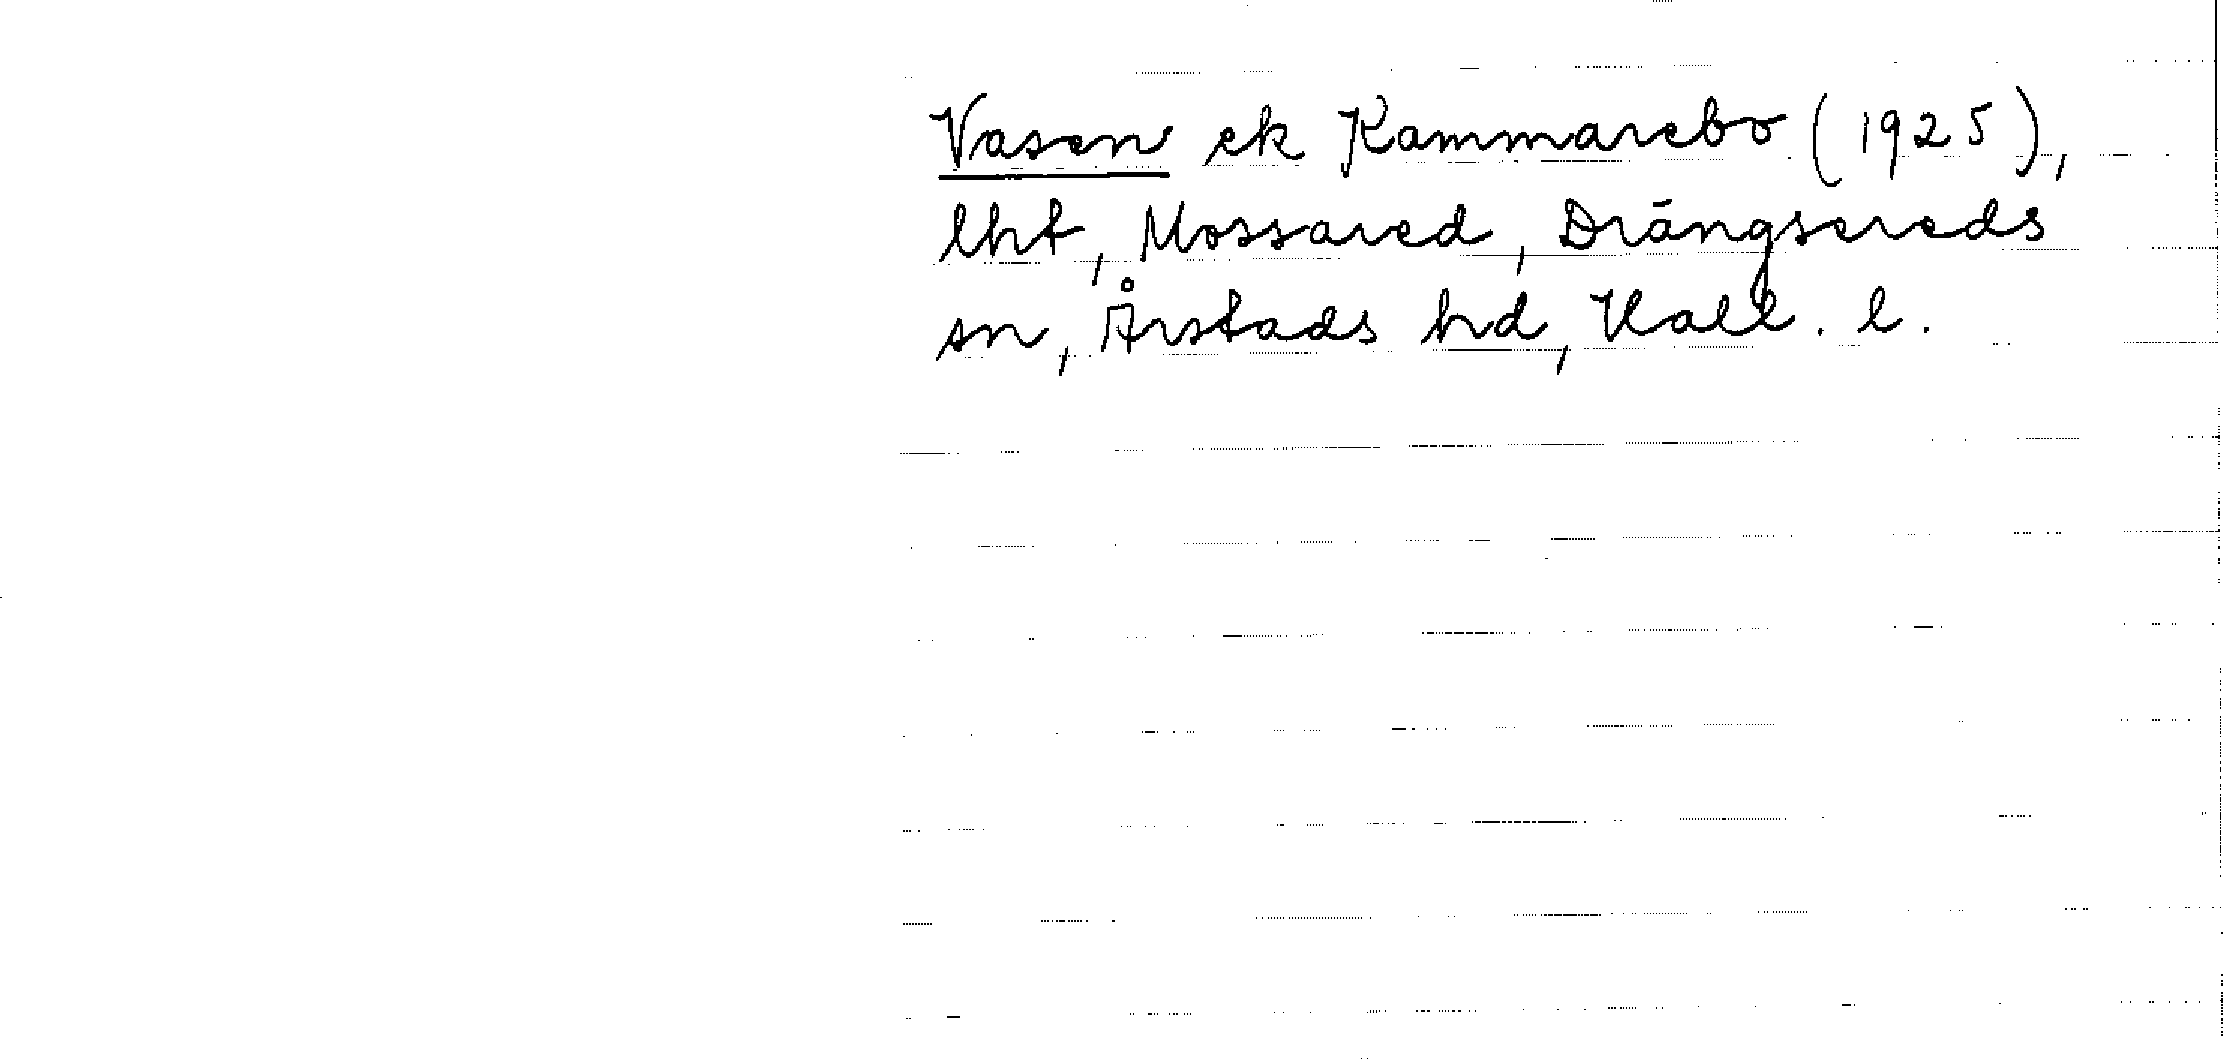 Vasen ek Kammarebo (1925),
lht, Mossared, Drängsereds
sn, Årstads hd, Hall. l.